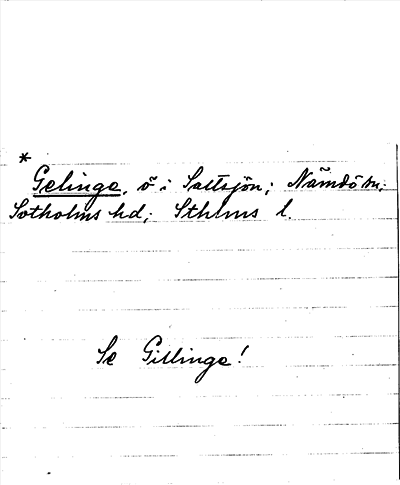 *
Gelinge, ö i Saltsjön; Nämdö sn;
Sotholms hd; Sthlms l.
Se Gillinge!